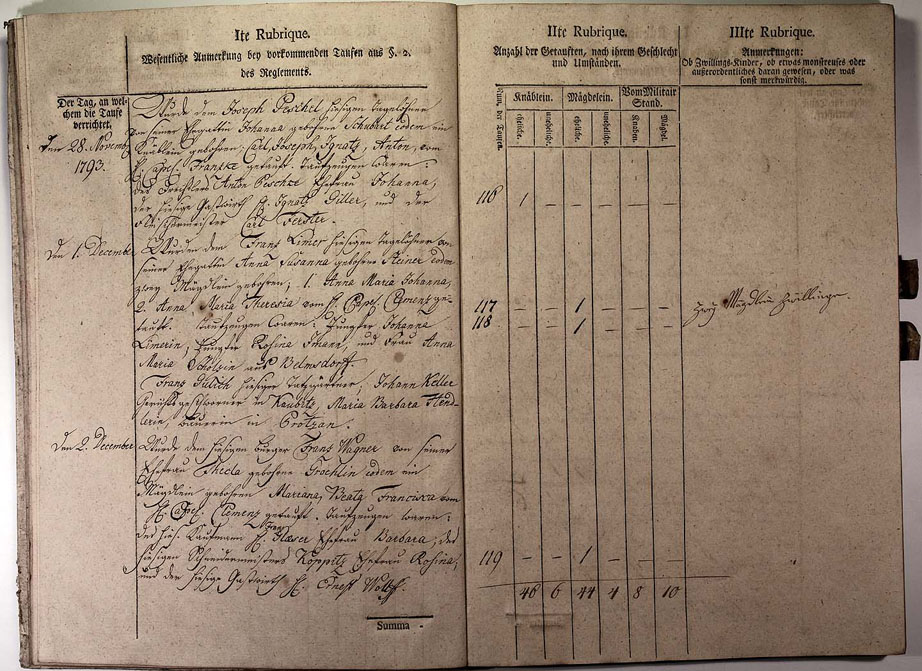 Ite Rubrique.
Wesentliche Anmerkung bey vorkommenden Taufen aus §. 2.
des Reglements.
Der Tag, an wel-
chem die Taufe
verrichtet.
Den 28. Novemb:
1793.
Wurde dem Joseph Peschel hiesigen Tagelöhner
von seiner Ehegattin Johanna gebohrne Schubert eodem ein
Knäblein gebohren: Carl, Joseph, Ignatz, Anton, vom
H. Capel. Francke getauft. Taufzeugen waren:
des Drechslers Anton Peschke Ehefrau Johanna,
der hiesige Gastwirth H. Ignatz Hiller, und der
Fleischermeister Carl Ferster.
Den 1. December
Wurden dem Franz Limer hiesigen Tagelöhner von
seiner Ehegattin Anna Susanna gebohrne Reiner eodem
zwey Mägdlein gebohren; 1. Anna Maria Johanna,
2. Anna Maria Theresia vom H. Capel. Clemenz ge-
tauft. Taufzeugen waren: Jungfer Johanna
Limerin, Jungfer Rosina Johann, und Frau Anna
Maria Scholzin aus Belmsdorf.
Franz hiesiger Johann Keller
in Kaubitz Maria Barbara
Bäuerin in Protzan.
Den 2. December
Wurde dem hiesigen Bürger Franz Wagner von seiner
Ehefrau Thecla gebohrne eodem ein
Mägdlein gebohren Mariana, Beata Francisca vom
H. Capel. Clemenz getauft. Taufzeugen waren:
des hies. Kaufmann H. Franz Glaeser Ehefrau Barbara; des
hiesigen Schneidermeisters Koppitz Ehefrau Rosina,
und der hiesige Gastwirth H. Ernest Wolff.
Summa -
IIte Rubrique.
Anzahl der Getauften, nach ihrem Geschlecht
und Umständen.
Num. der Taufen.
Knäblein.
Mägdelein.
Vom Militair
Stand.
eheliche.
uneheliche.
eheliche.
uneheliche.
Knaben.
Mägdel.
116 1 – – – – –
117 – – 1 – – –
118 – – 1 – – –
119 – – 1 – – –
46 6 44 4 8 10
IIIte Rubrique.
Anmerkungen:
Ob Zwillings-Kinder, ob etwas monstreuses oder
außerordentliches daran gewesen, oder was
sonst merkwürdig.
Zwey Mägdlein Zwillinge.